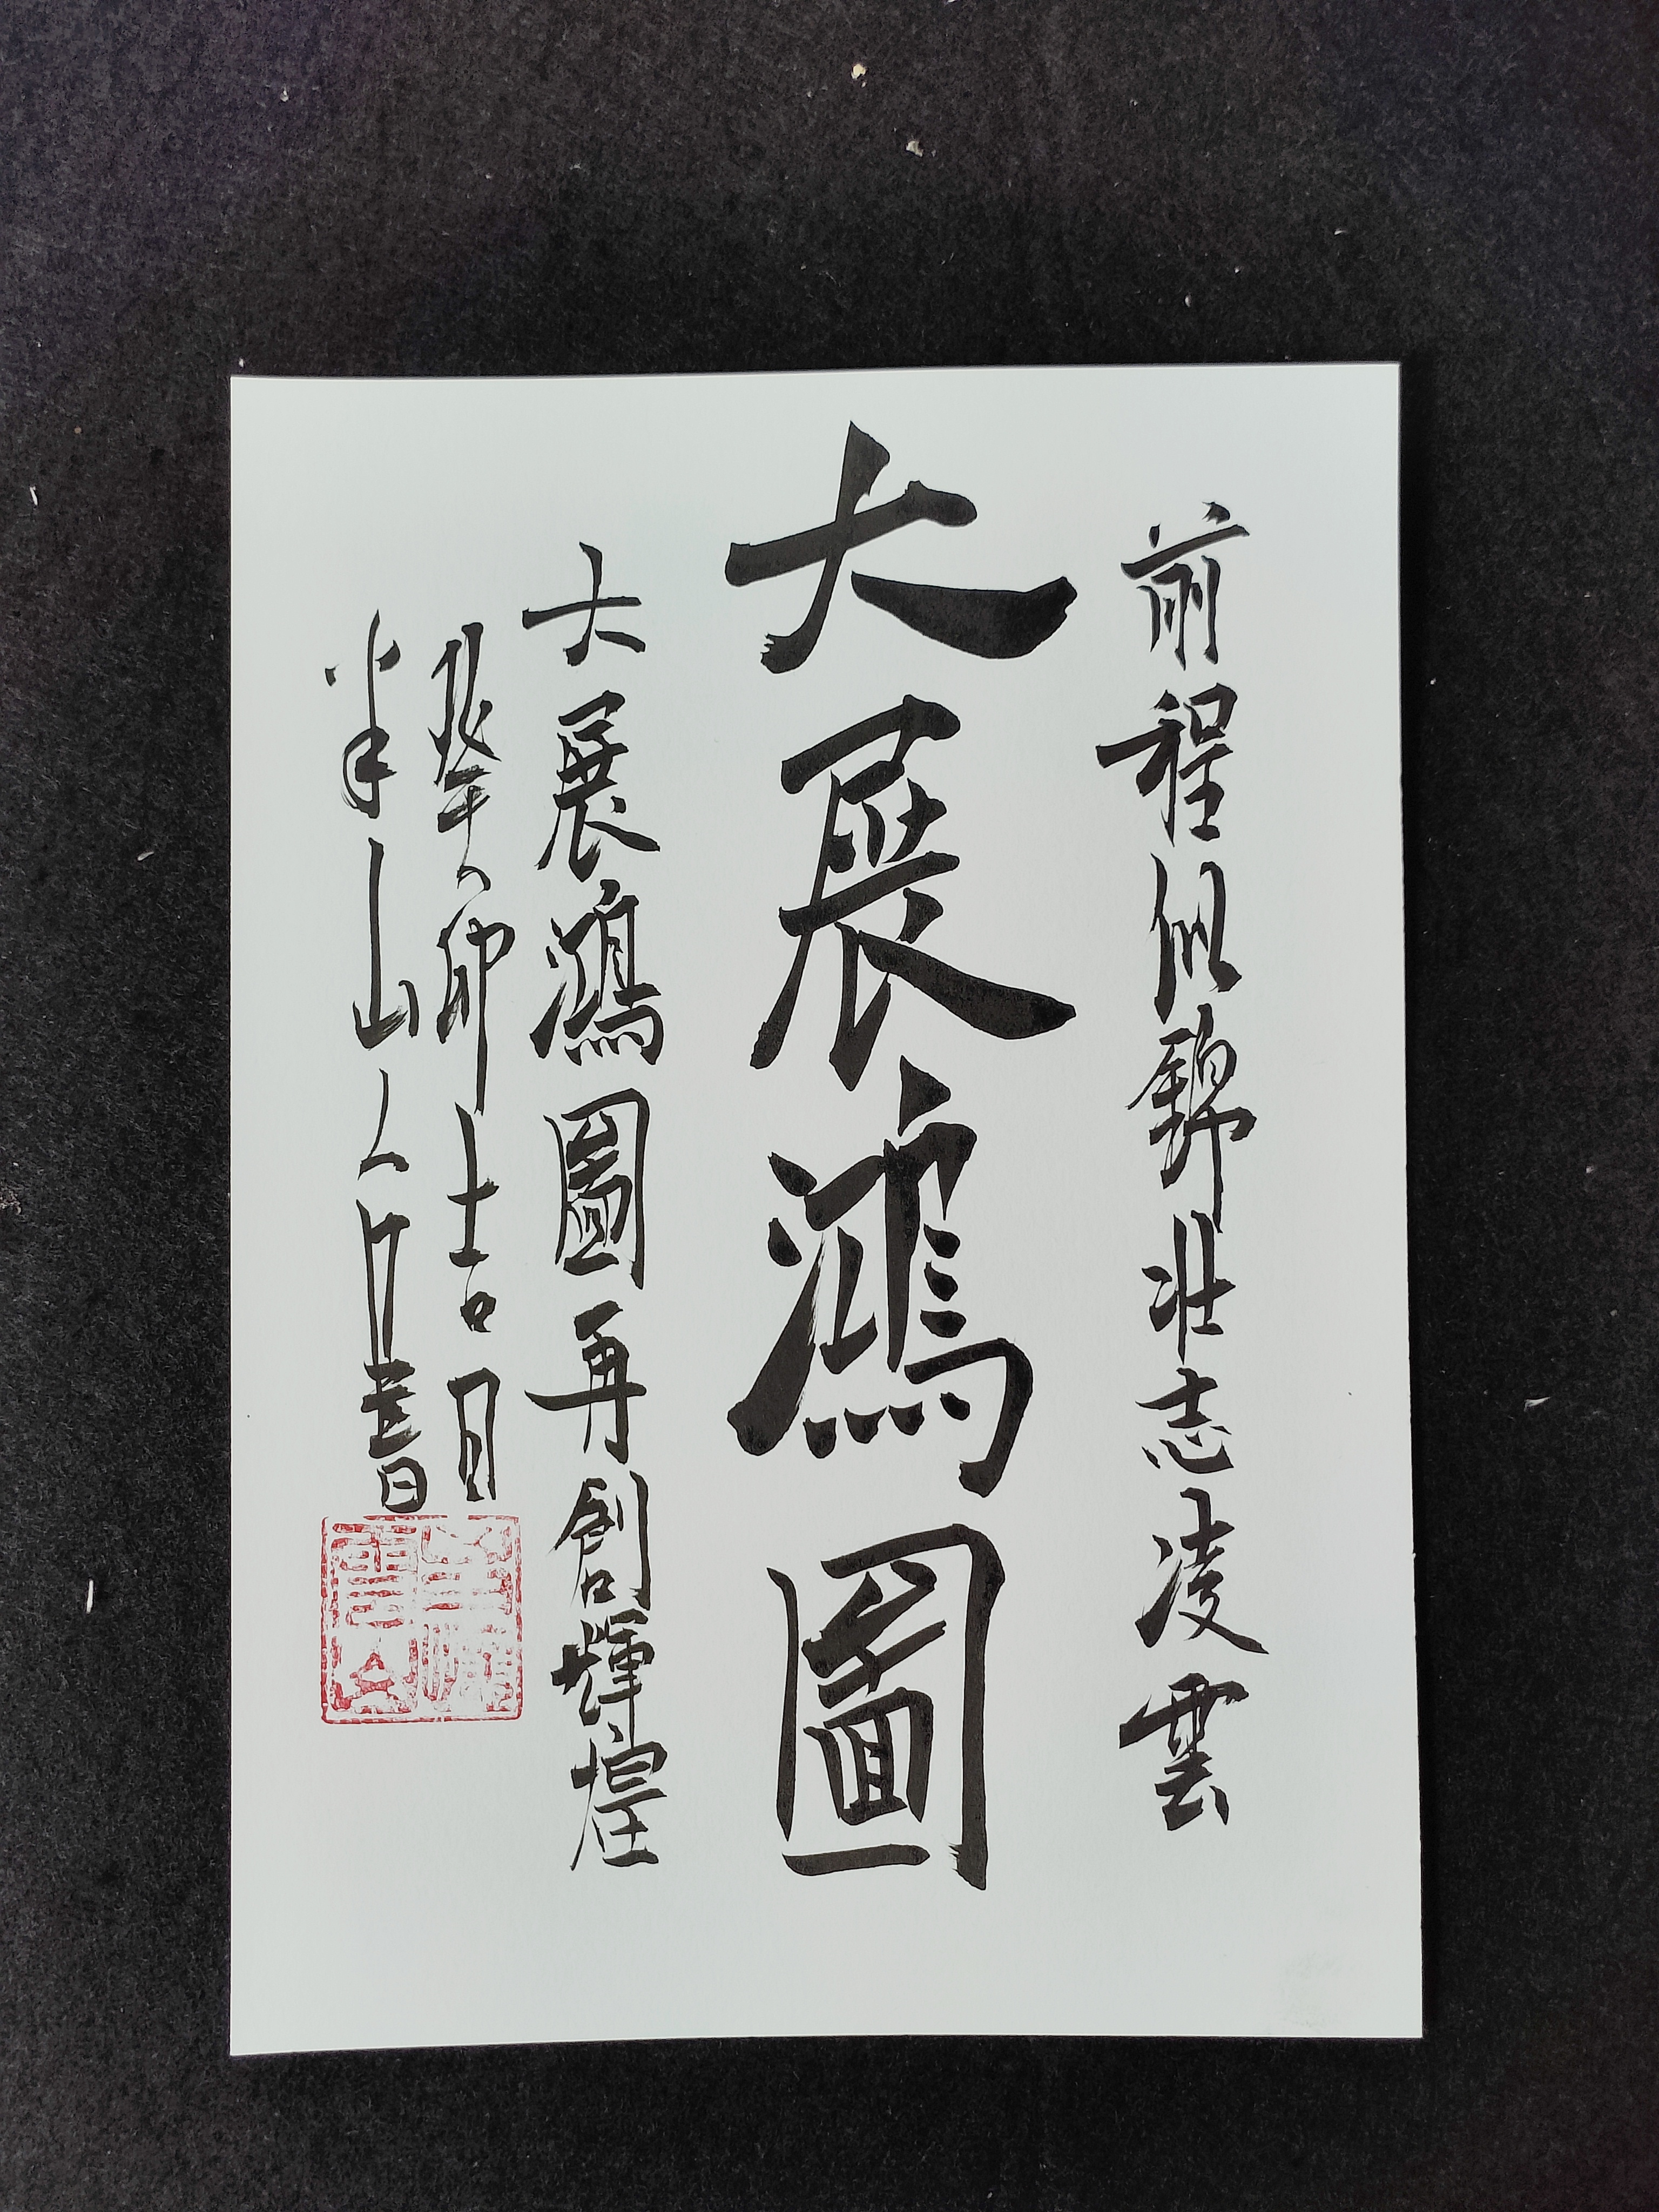 前程似錦壯志凌雲
大展鴻圖
大展鴻圖再創輝煌
癸卯吉日
半山人竹書